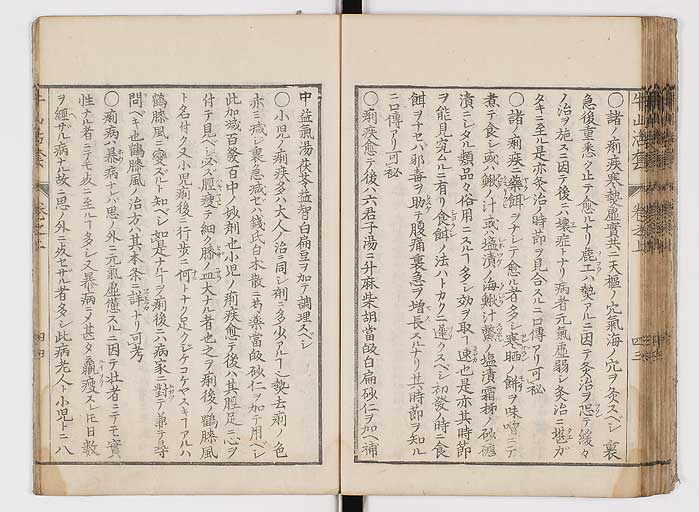 〇諸ノ痢疾寒熱虚實共ニ天樞ノ穴氣海ノ穴ヲ灸スベシ裏
急後重悉ク止テ愈ルナリ庸工ハ熱アルニ因テ灸治ヲ恐テ緩々
ノ治ヲ施スニ因テ後ニハ壊症トナリ病者元氣虚弱シ灸治ニ堪ガ
タキニ至ル是亦灸治ノ時節ヲ見合スルニ口傳アリ可秘
〇諸ノ痢疾ニ藥餌ヲナシテ愈ル者多シ寒晒ノ餅ヲ味噌ニテ
煮テ食シ或ハ鰍汁或ハ塩漬ノ海鰍汁鱉ノ塩漬霜梯ノ砂糖
漬ニシタル類品々俗用ニスルコト多シ効ヲ取コト速也是亦其時節
ヲ能見究ムルニ有リ食餌ノ法ハトカクニ遲クスベシ初發ノ時ニ食
餌ヲナセバ邪毒ヲ助テ腹痛裏急ヲ增長スルナリ其時節ヲ知ル
ニ口傳アリ可秘
〇痢疾愈テ後ハ六君子湯ニ升麻柴胡當皈白扁砂仁ヲ加ヘ補
中益氣湯ニ茯苓益智白扁豆ヲ加テ調理スベシ
〇小児ノ痢疾多ハ大人ノ治ニ同シ剤ニ多少アルコト熱去痢ノ色
赤ニ減シ裏急減セバ錢氏白木散ニ芍薬當皈砂仁ヲ加テ用ベシ
此加減百發百中ノ妙剤也小児ノ痢疾愈テ後ハ其脛足ニ心ヲ
付テ見ベシ必ズ脛瘦テ細ク膝ノ皿大ナル者也之ヲ痢後ノ鶴膝風
ト名付ク又小児痢後ニ行歩ニ何トナク足クシケコケヤスキコアルハ
鶴膝風ニ變スルト知ベシ如是ナルコヲ痢後ニハ病家ニ對テ兼テ尋
問ベキ也鶴膝風ノ治方ハ其本条ニ詳ナリ可考
〇痢病ハ暴病ナレバ思ノ外ニ元氣虚憊スルニ因テ壮者ニテモ實
性ナル者ニテモ死ニ至ルコト多シ又暴病ニテ甚タ羸瘦スレ𪜈日數
ヲ經ザル病ナル故ニ思ノ外ニ死セザル者多シ此病老人ト小児トニハ